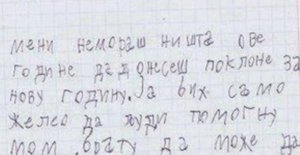 мени немораш ништа ове
године да донесеш поклоне за
нову годину. Ја бих само
желео да људи помогну
мом брату да може да